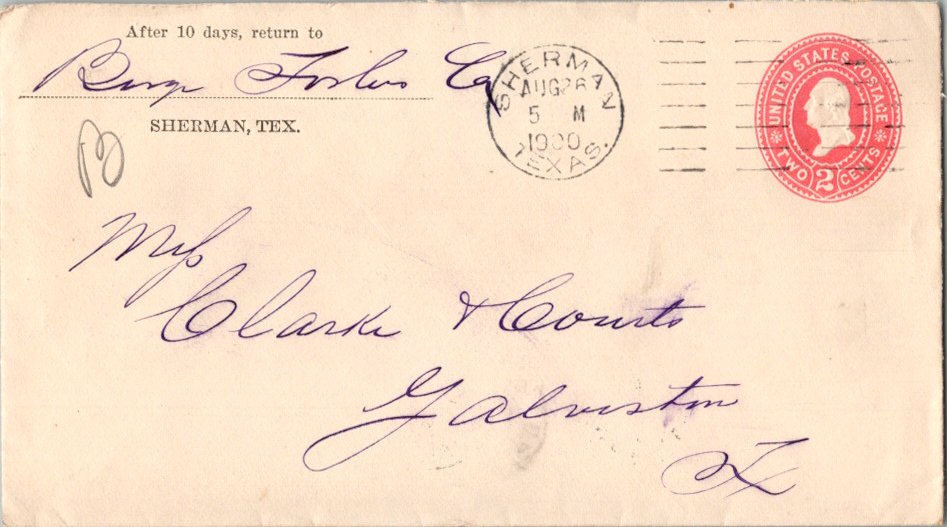 After 10 days, return to
Forbes Co
SHERMAN, TEX.
B
SHERMAN
AUG 26
5 M
1900
TEXAS.
UNITED STATES POSTAGE
TWO 2 CENTS
Mess
Clarke & Courts
Galveston
Tx